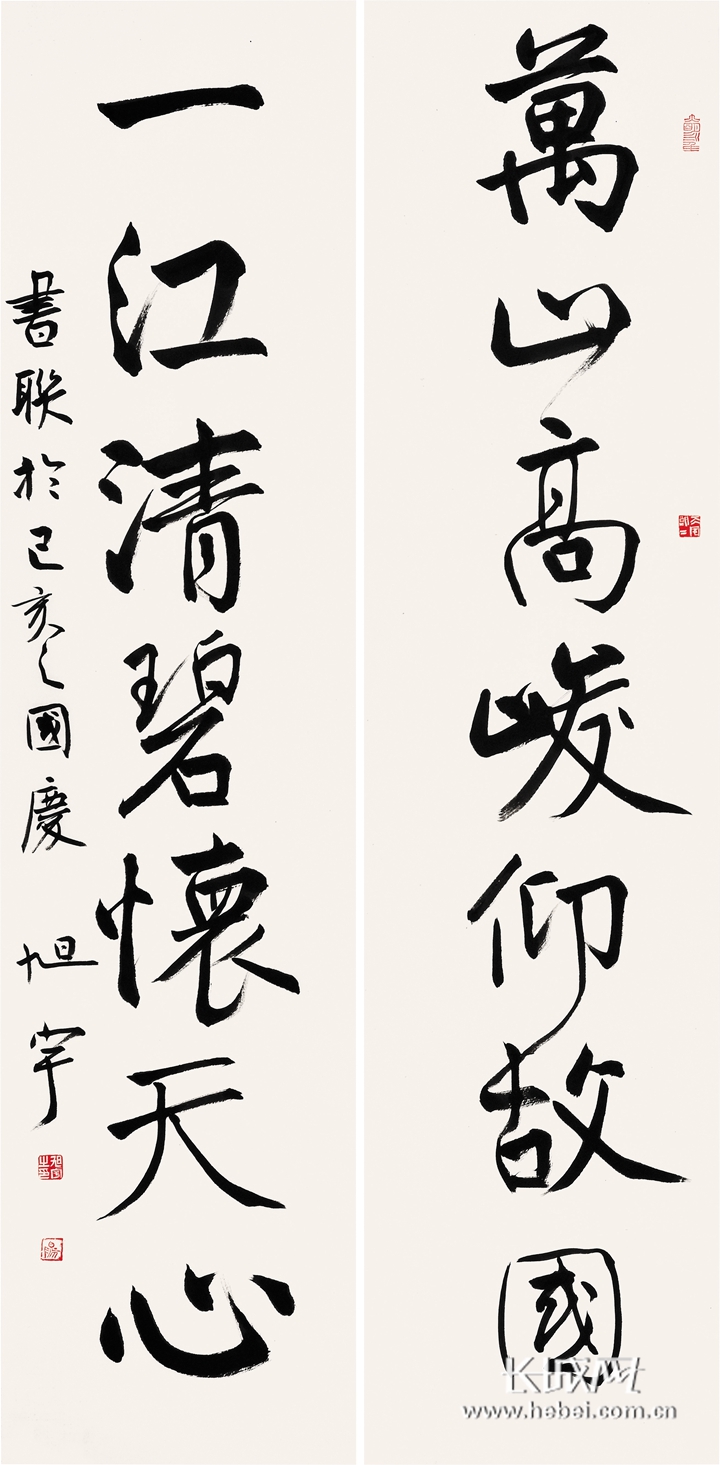 萬山高峻仰故國
一江清碧懷天心
書聯於己亥之國慶 旭宇
长城网
www.hebei.com.cn